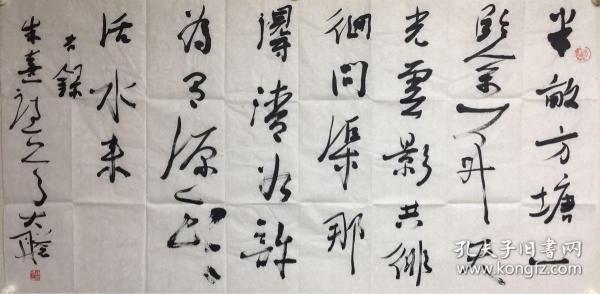 半畝方塘一
鑑開天
光雲影共徘
徊問渠那
得清如許
為有源頭
活水来
右錄
朱熹詩
孔夫子旧书网
www.kongfz.com